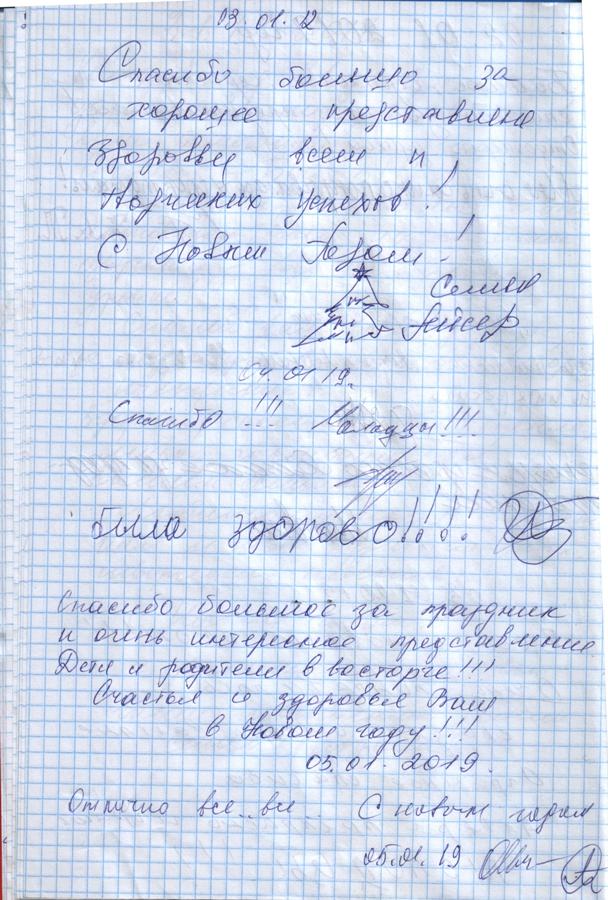 03.01.12
Спасибо большо за
хорошее представлене
Здоровья всем и
творческих успехов!
С Новым Годом!
Семья
04.01 19г.
Спасибо!!! Молодцы!!!
Было здорово!!!!
Спасибо большое за праздник
и очень интересное представление
Дети и родители в восторге!!!
Счастья и здоровья Вам
в Новом году!!!
05.01.2019.
Отлично все..все... С новым годом
05.01.19